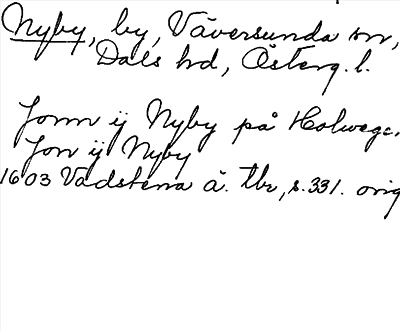 Nyby, by, Väversunda sn,
Dals hd, Österg. l.
Jonn ij Nyby på Holwegc.
Jon ij Nyby
1603 Vadstena ä. tbr, s. 331. orig